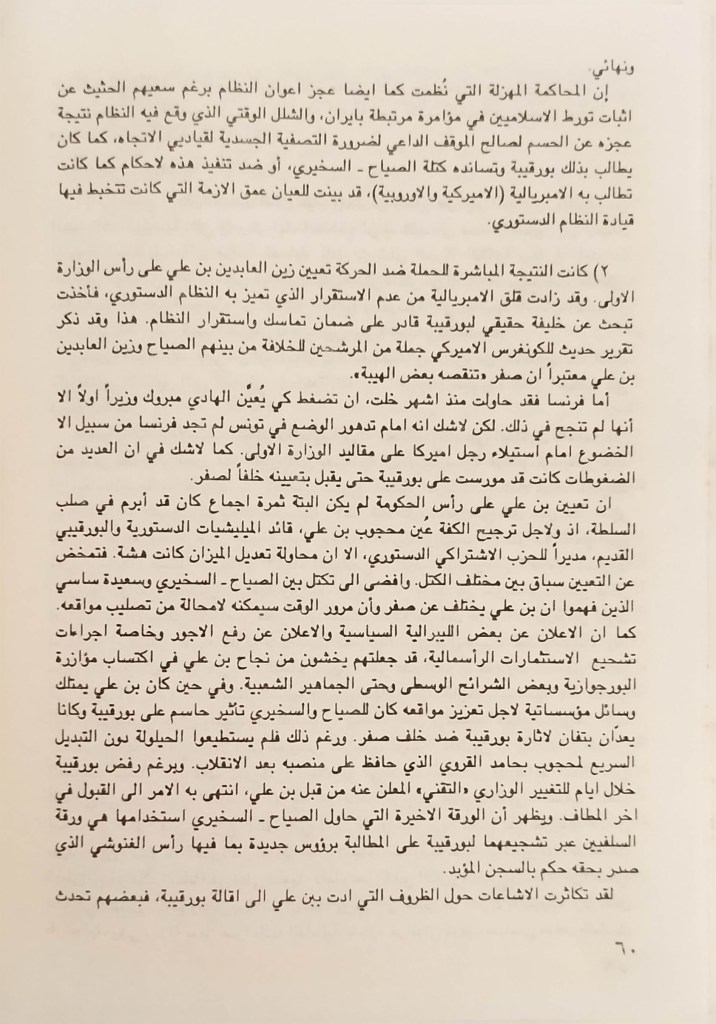 ونهائي.
إن المحاكمة المهزلة التي نُظمت كما ايضا عجز اعوان النظام برغم سعيهم الحثيث عن
اثبات تورط الاسلاميين في مؤامرة مرتبطة بايران، والشلل الوقتي الذي وقع فيه النظام نتيجة
عجزه عن الحسم لصالح الموقف الداعي لضرورة التصفية الجسدية لقياديي الاتجاه، كما كان
يطالب بذلك بورقيبة وتسانده كتلة الصياح ـ السخيري، أو ضد تنفيذ هذه لاحكام كما كانت
تطالب به الامبريالية (الاميركية والاوروبية)، قد بينت للعيان عمق الازمة التي كانت تتخبط فيها
قيادة النظام الدستوري.
٢) كانت النتيجة المباشرة للحملة ضد الحركة تعيين زين العابدين بن علي على رأس الوزارة
الاولى. وقد زادت قلق الامبريالية من عدم الاستقرار الذي تميز به النظام الدستوري، فأخذت
تبحث عن خليفة حقيقي لبورقيبة قادر على ضمان تماسك واستقرار النظام. هذا وقد ذكر
تقرير حديث للكونغرس الاميركي جملة من المرشحين للخلافة من بينهم الصياح وزين العابدين
بن علي معتبراً ان صفر «تنقصه بعض الهيبة».
أما فرنسا فقد حاولت منذ اشهر خلت، ان تضغط كي يُعيَّن الهادي مبروك وزيراً اولاً الا
أنها لم تنجح في ذلك. لكن لاشك انه امام تدهور الوضع في تونس لم تجد فرنسا من سبيل الا
الخضوع امام استيلاء رجل اميركا على مقاليد الوزارة الاولى. كما لاشك في ان العديد من
الضغوطات كانت قد مورست على بورقيبة حتى يقبل بتعيينه خلفاً لصفر.
ان تعيين بن علي على رأس الحكومة لم يكن البتة ثمرة اجماع كان قد أبرم في صلب
السلطة، اذ ولاجل ترجيح الكفة عُين محجوب بن علي، قائد الميليشيات الدستورية والبورقيبي
القديم، مديراً للحزب الاشتراكي الدستوري، الا ان محاولة تعديل الميزان كانت هشة. فتمخض
عن التعيين سباق بين مختلف الكتل. وافضى الى تكتل بين الصياح ـ السخيري وسعيدة ساسي
الذين فهموا ان بن علي يختلف عن صفر وأن مرور الوقت سيمكنه لامحالة من تصليب مواقعه.
كما ان الاعلان عن بعض الليبرالية السياسية والاعلان عن رفع الاجور وخاصة اجراءات
تشجيع الاستثمارات الرأسمالية، قد جعلتهم يخشون من نجاح بن علي في اكتساب مؤازرة
البورجوازية وبعض الشرائح الوسطى وحتى الجماهير الشعبية. وفي حين كان بن علي يمتلك
وسائل مؤسساتية لاجل تعزيز مواقعه كان للصياح والسخيري تأثير حاسم على بورقيبة وكانا
يعدّان بتفان لاثارة بورقيبة ضد خلف صفر. ورغم ذلك فلم يستطيعوا الحيلولة دون التبديل
السريع لمحجوب بحامد القروي الذي حافظ على منصبه بعد الانقلاب. وبرغم رفض بورقيبة
خلال ايام للتغيير الوزاري «التقني» المعلن عنه من قبل بن علي، انتهى به الامر الى القبول في
اخر المطاف. ويظهر أن الورقة الاخيرة التي حاول الصياح ـ السخيري استخدامها هي ورقة
السلفيين عبر تشجيعهما لبورقيبة على المطالبة برؤوس جديدة بما فيها رأس الغنوشي الذي
صدر بحقه حكم بالسجن المؤبد.
لقد تكاثرت الاشاعات حول الظروف التي ادت ببن علي الى اقالة بورقيبة، فبعضهم تحدث
٦٠